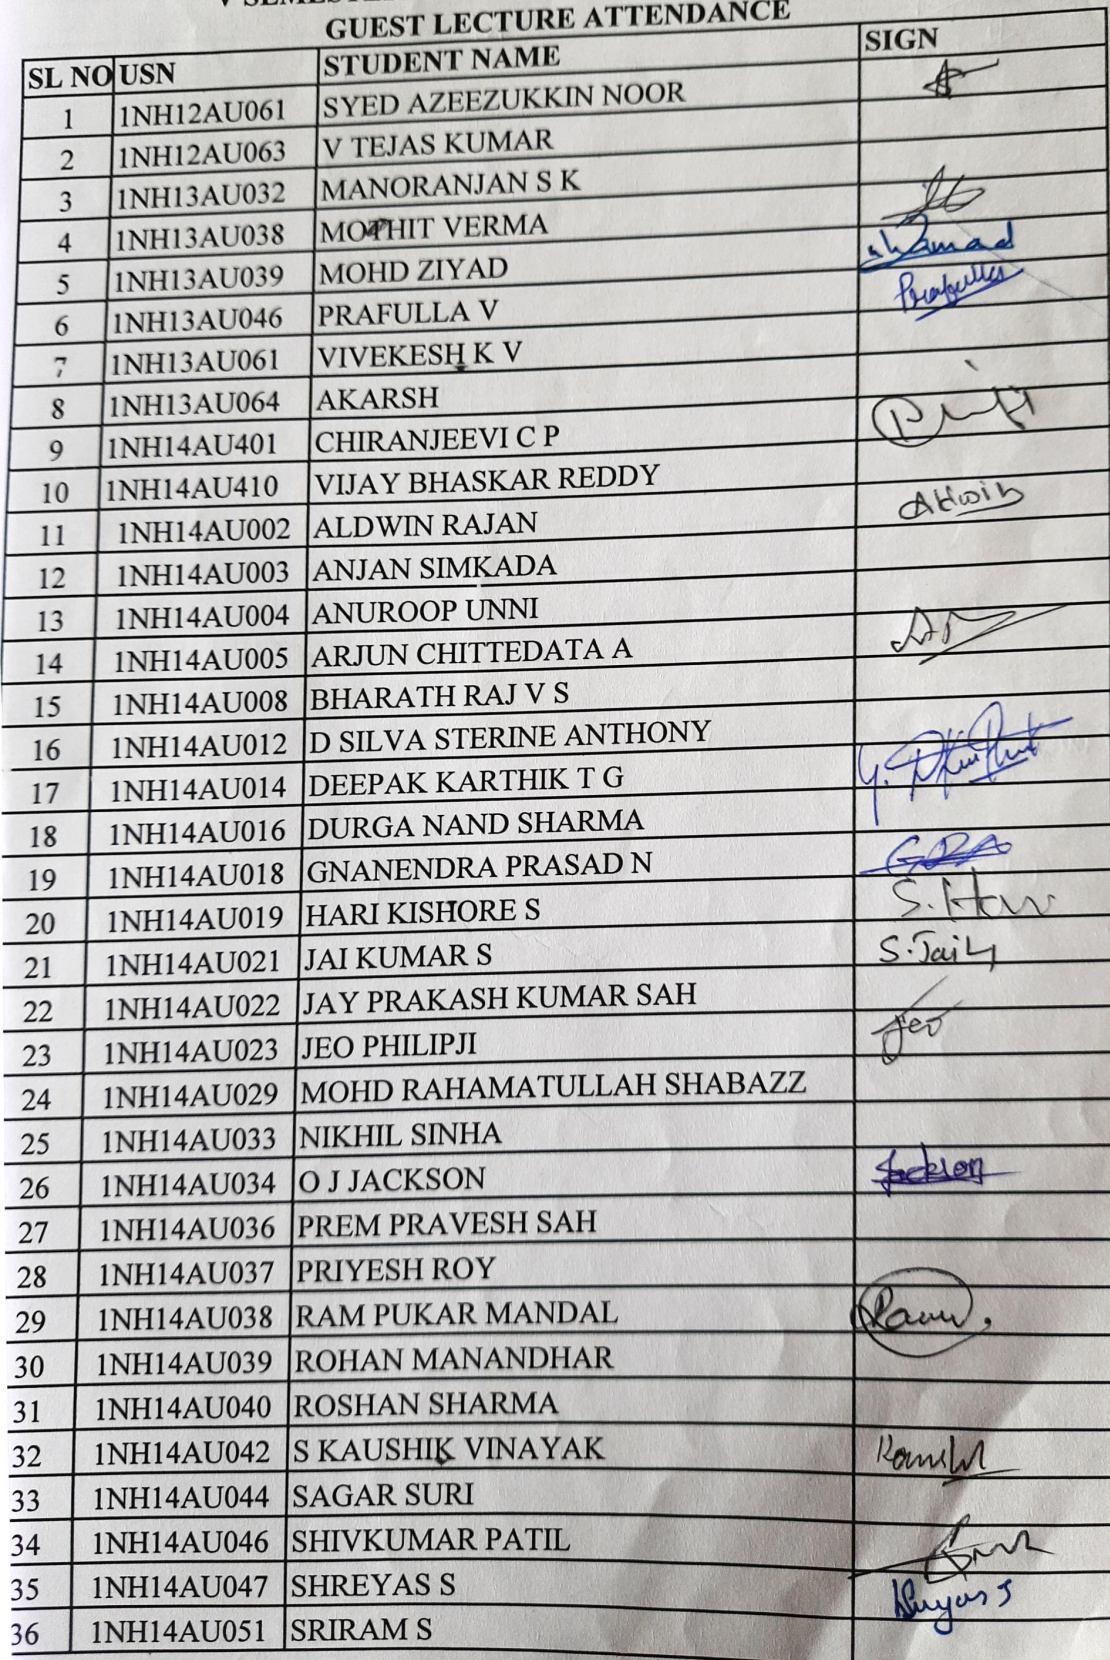 GUEST LECTURE ATTENDANCE
SL NO USN STUDENT NAME SIGN
1 1NH12AU061 SYED AZEEZUKKIN NOOR
2 1NH12AU063 V TEJAS KUMAR
3 1NH13AU032 MANORANJAN S K
4 1NH13AU038 MOTHIT VERMA
5 1NH13AU039 MOHD ZIYAD
6 1NH13AU046 PRAFULLA V Prafulla
7 1NH13AU061 VIVEKESH K V
8 1NH13AU064 AKARSH
9 1NH14AU401 CHIRANJEEVI C P
10 1NH14AU410 VIJAY BHASKAR REDDY
11 1NH14AU002 ALDWIN RAJAN Aldwin
12 1NH14AU003 ANJAN SIMKADA
13 1NH14AU004 ANUROOP UNNI
14 1NH14AU005 ARJUN CHITTEDATA A
15 1NH14AU008 BHARATH RAJ V S
16 1NH14AU012 D SILVA STERINE ANTHONY
17 1NH14AU014 DEEPAK KARTHIK T G
18 1NH14AU016 DURGA NAND SHARMA
19 1NH14AU018 GNANENDRA PRASAD N
20 1NH14AU019 HARI KISHORE S
21 1NH14AU021 JAI KUMAR S
22 1NH14AU022 JAY PRAKASH KUMAR SAH
23 1NH14AU023 JEO PHILIPJI Jeo
24 1NH14AU029 MOHD RAHAMATULLAH SHABAZZ
25 1NH14AU033 NIKHIL SINHA
26 1NH14AU034 O J JACKSON Jackson
27 1NH14AU036 PREM PRAVESH SAH
28 1NH14AU037 PRIYESH ROY
29 1NH14AU038 RAM PUKAR MANDAL
30 1NH14AU039 ROHAN MANANDHAR
31 1NH14AU040 ROSHAN SHARMA
32 1NH14AU042 S KAUSHIK VINAYAK
33 1NH14AU044 SAGAR SURI
34 1NH14AU046 SHIVKUMAR PATIL
35 1NH14AU047 SHREYAS S Shreyas S
36 1NH14AU051 SRIRAM S